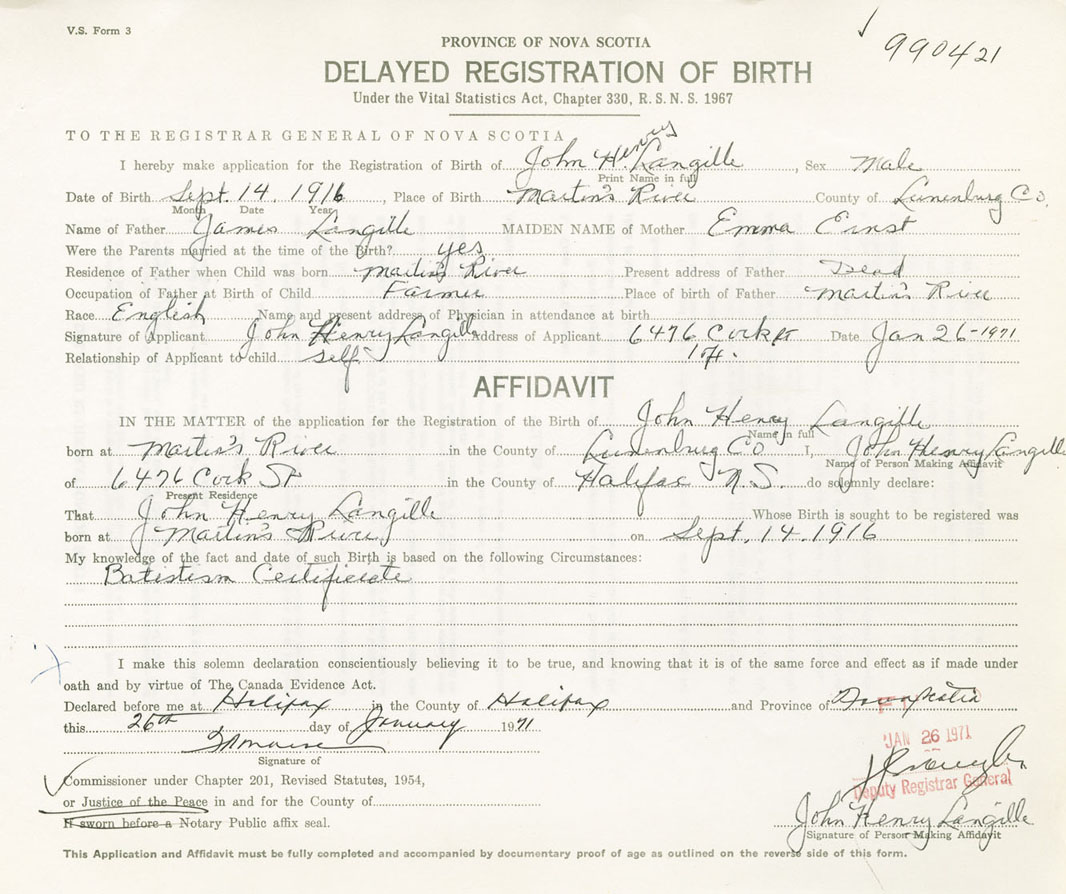 V.S. Form 3
990421
PROVINCE OF NOVA SCOTIA
DELAYED REGISTRATION OF BIRTH
Under the Vital Statistics Act, Chapter 330, R. S. N. S. 1967
TO THE REGISTRAR GENERAL OF NOVA SCOTIA
I hereby make application for the Registration of Birth of John Henry Langille, Sex Male
Print Name in full
Date of Birth Sept. 14. 1916, Place of Birth Martin's River County of Lunenburg Co.
Month Date Year
Name of Father James Langille MAIDEN NAME of Mother Emma Ernst
Were the Parents married at the time of the Birth? yes
Residence of Father when Child was born Martin's River Present address of Father Dead
Occupation of Father at Birth of Child Farmer Place of birth of Father Martin's River
Race English Name and present address of Physician in attendance at birth
Signature of Applicant John Henry Langille Address of Applicant 6476 Cork St Date Jan 26-1971
Relationship of Applicant to child self
AFFIDAVIT
IN THE MATTER of the application for the Registration of the Birth of John Henry Langille
Name in full
born at Martin's River in the County of Lunenburg Co I, John Henry Langille
Name of Person Making Affidavit
of 6476 Cork St in the County of Halifax N.S. do solemnly declare:
Present Residence
That John Henry Langille Whose Birth is sought to be registered was
born at Martin's River on Sept. 14. 1916
My knowledge of the fact and date of such Birth is based on the following Circumstances:
Batistism Certificate
I make this solemn declaration conscientiously believing it to be true, and knowing that it is of the same force and effect as if made under
oath and by virtue of The Canada Evidence Act.
Declared before me at Halifax in the County of Halifax and Province of Nova Scotia
this 26th day of January 1971
JAN 26 1971
Signature of
Commissioner under Chapter 201, Revised Statutes, 1954,
Deputy Registrar General
or Justice of the Peace in and for the County of
If sworn before a Notary Public affix seal.
John Henry Langille
Signature of Person Making Affidavit
This Application and Affidavit must be fully completed and accompanied by documentary proof of age as outlined on the reverse side of this form.